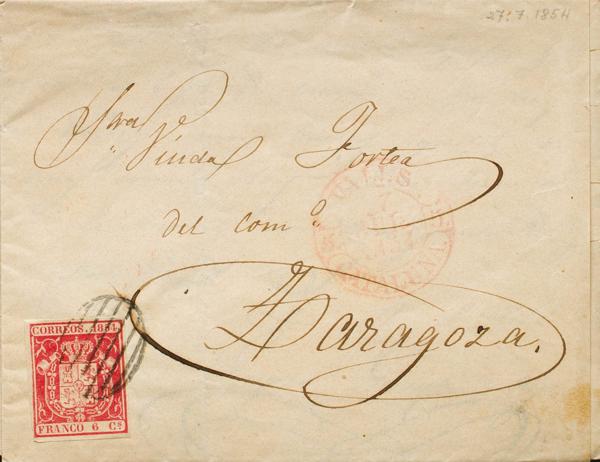 27.7.1854
Sra Viuda Fortea
del com.º
Zaragoza.
VALLS
CATALUÑA
CORREOS. 1854.
FRANCO 6 Cs